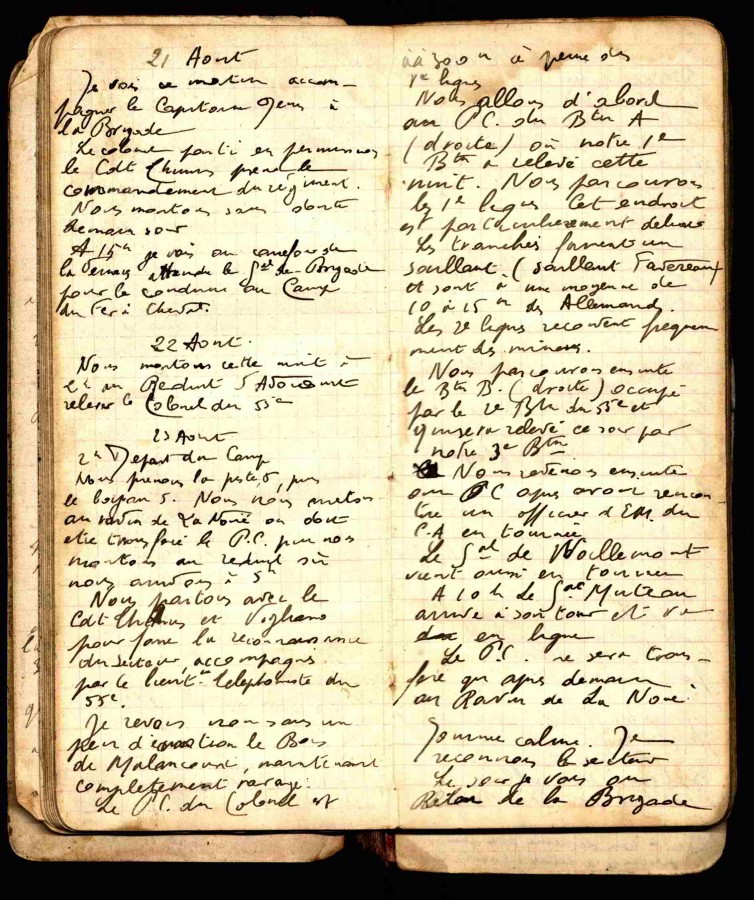 21 Aout
Je vais ce matin accom-
pagner le Capitaine à
la Brigade
Le colonel parti en permission
le Cdt prend le
commandement du régiment.
Nous montons sans doute
demain soir
A 15h je vais au carrefour de
la attendre le Gal de Brigade
pour le conduire au Camp
du Fer à Cheval.
22 Aout.
Nous montons cette nuit à
2h au Reduit
relever le Colonel du 55e
23 Aout
2h Depart du Camp
Nous prenons la piste 5, puis
le boyau 5. Nous nous
au ravin de La Noue où doit
etre transferé le P.C. puis nous
montons au reduit où
nous arrivons à 5h
Nous partons avec le
Cdt et
pour faire la reconnaissance
du secteur, accompagnés
par le lieut-t telephoniste du
55e.
Je revois non sans un
peu d'emotion le Bois
de Malancourt, maintenant
completement ravagé.
Le P.C. du Colonel est
à 300 m à peine des
1e lignes
Nous allons d'abord
au P.C. du Btn A
(droite) où notre 1e
Btn a relevé cette
nuit. Nous parcourons
les 1e lignes Cet endroit
est particulierement delicat
Les tranchés forment un
saillant. (saillant Favereau)
et sont à une moyenne de
10 à 15 m des Allemands.
Les 2e lignes recoivent frequem
ment des minens.
Nous parcourons ensuite
le Btn B. (droite) occupé
par le 2e Btn du 55e et
qui sera relevé ce soir par
notre 3e Btn
Nous revenons ensuite
au PC apres avoir rencon-
tre un officier d'E.M. du
C.A en tournée
Le Gal de Woillemont
vient aussi en tournée
A 10 h le Gal Muteau
arrive à son tour et va
en ligne
Le P.C. ne sera trans-
féré qu'apres demain
au Ravin de La Noue
Journée calme. Je
reconnais le secteur
Le soir je vais au
Relai de la Brigade